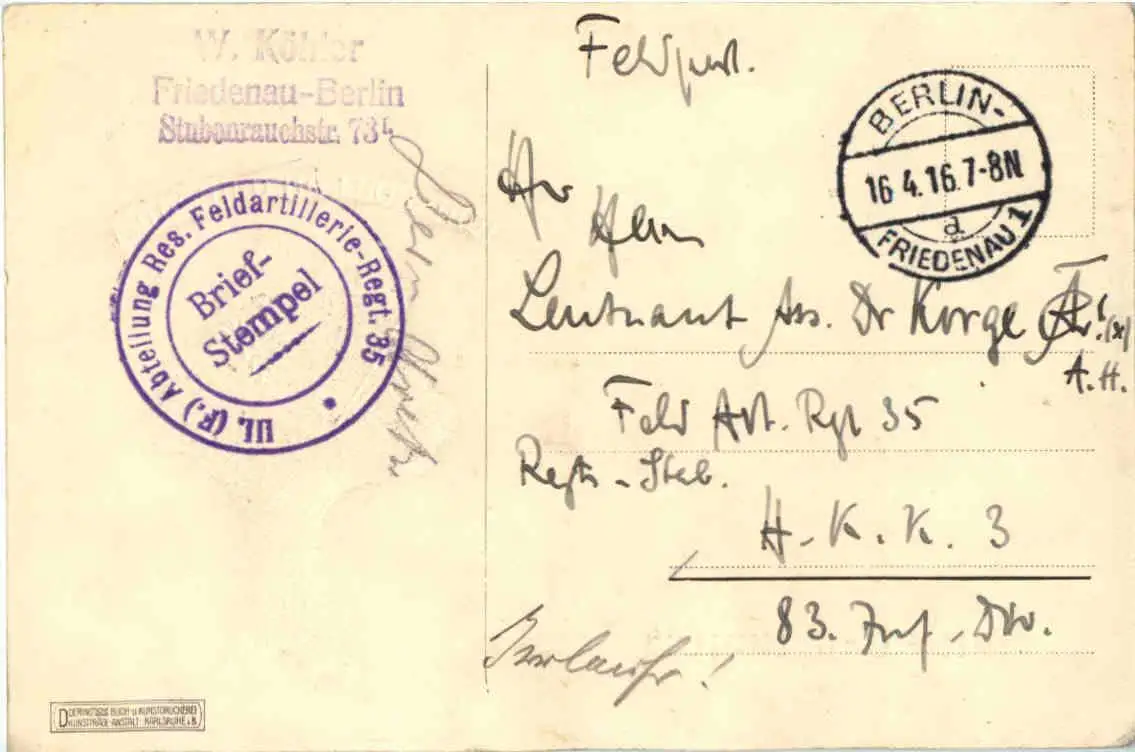 W. Köhler
Friedenau-Berlin
Stubenrauchstr. 73
III. (F.) Abteilung Res. Feldartillerie-Regt. 35
Brief-
Stempel
Feldpost.
BERLIN-
16.4.16.7-8N
a
FRIEDENAU 1
Herrn
Leutnant Ass. Dr Korge
A.H.
Feld Art. Rgt 35
Regts-Stab.
H.K.K. 3
83. Inf.-Div.
DOERINGSCHE BUCH- U KUNSTDRUCKEREI
KUNSTPRÄGE-ANSTALT KARLSRUHE i. B.